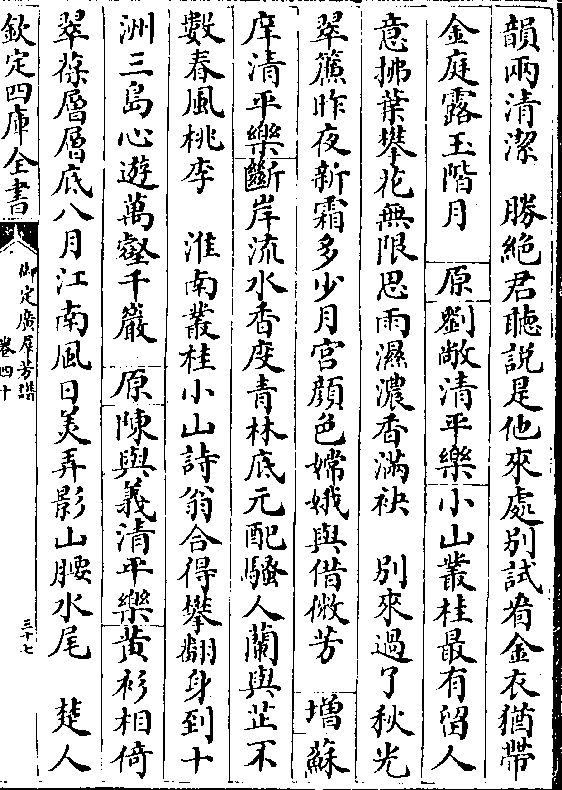 韻兩清潔　勝絶君聽說是他來處别試看金衣猶帶
金庭露玉階月　原劉敞清平樂小山叢桂最有留人
意拂葉攀花無限思雨濕濃香滿袂　別來過了秋光
翠簾昨夜新霜多少月宫顔色嫦娥與借微芳　增蘇
庠清平樂斷岸流水香度青林底元配騷人蘭與芷不
數春風桃李　淮南叢桂小山詩翁合得攀翻身到十
洲三島心遊萬壑千巖　原陳與義清平樂黃衫相倚
翠葆層層底八月江南風日美弄影山腰水尾　楚人
欽定四庫全書
御定廣羣芳譜
卷四十
三十七